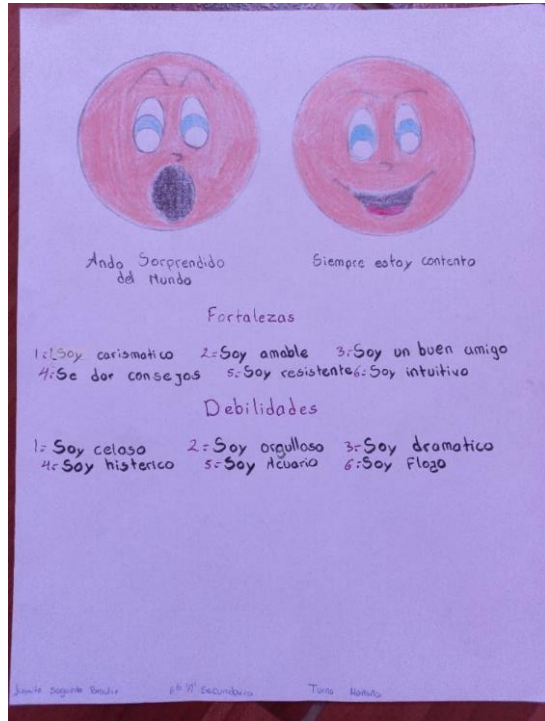 Ando Sorprendido
del Mundo
Siempre estoy contento
Fortalezas
1= Soy carismatico 2= Soy amable 3= Soy un buen amigo
4= Se dar consejos 5= Soy resistente 6= Soy intuitivo
Debilidades
1= Soy celoso 2= Soy orgulloso 3= Soy dramatico
4= Soy histerico 5= Soy Acuario 6= Soy Flogo
Secundaria Turno Mañana